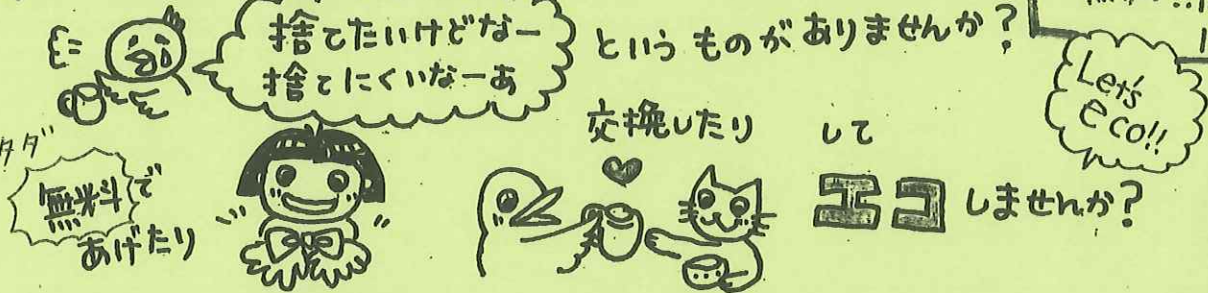 捨てたいけどなー
捨てにくいなーあ
というものがありませんか？
Let's
eco!!
タダ
無料で
あげたり
交換したり して
エコしませんか？